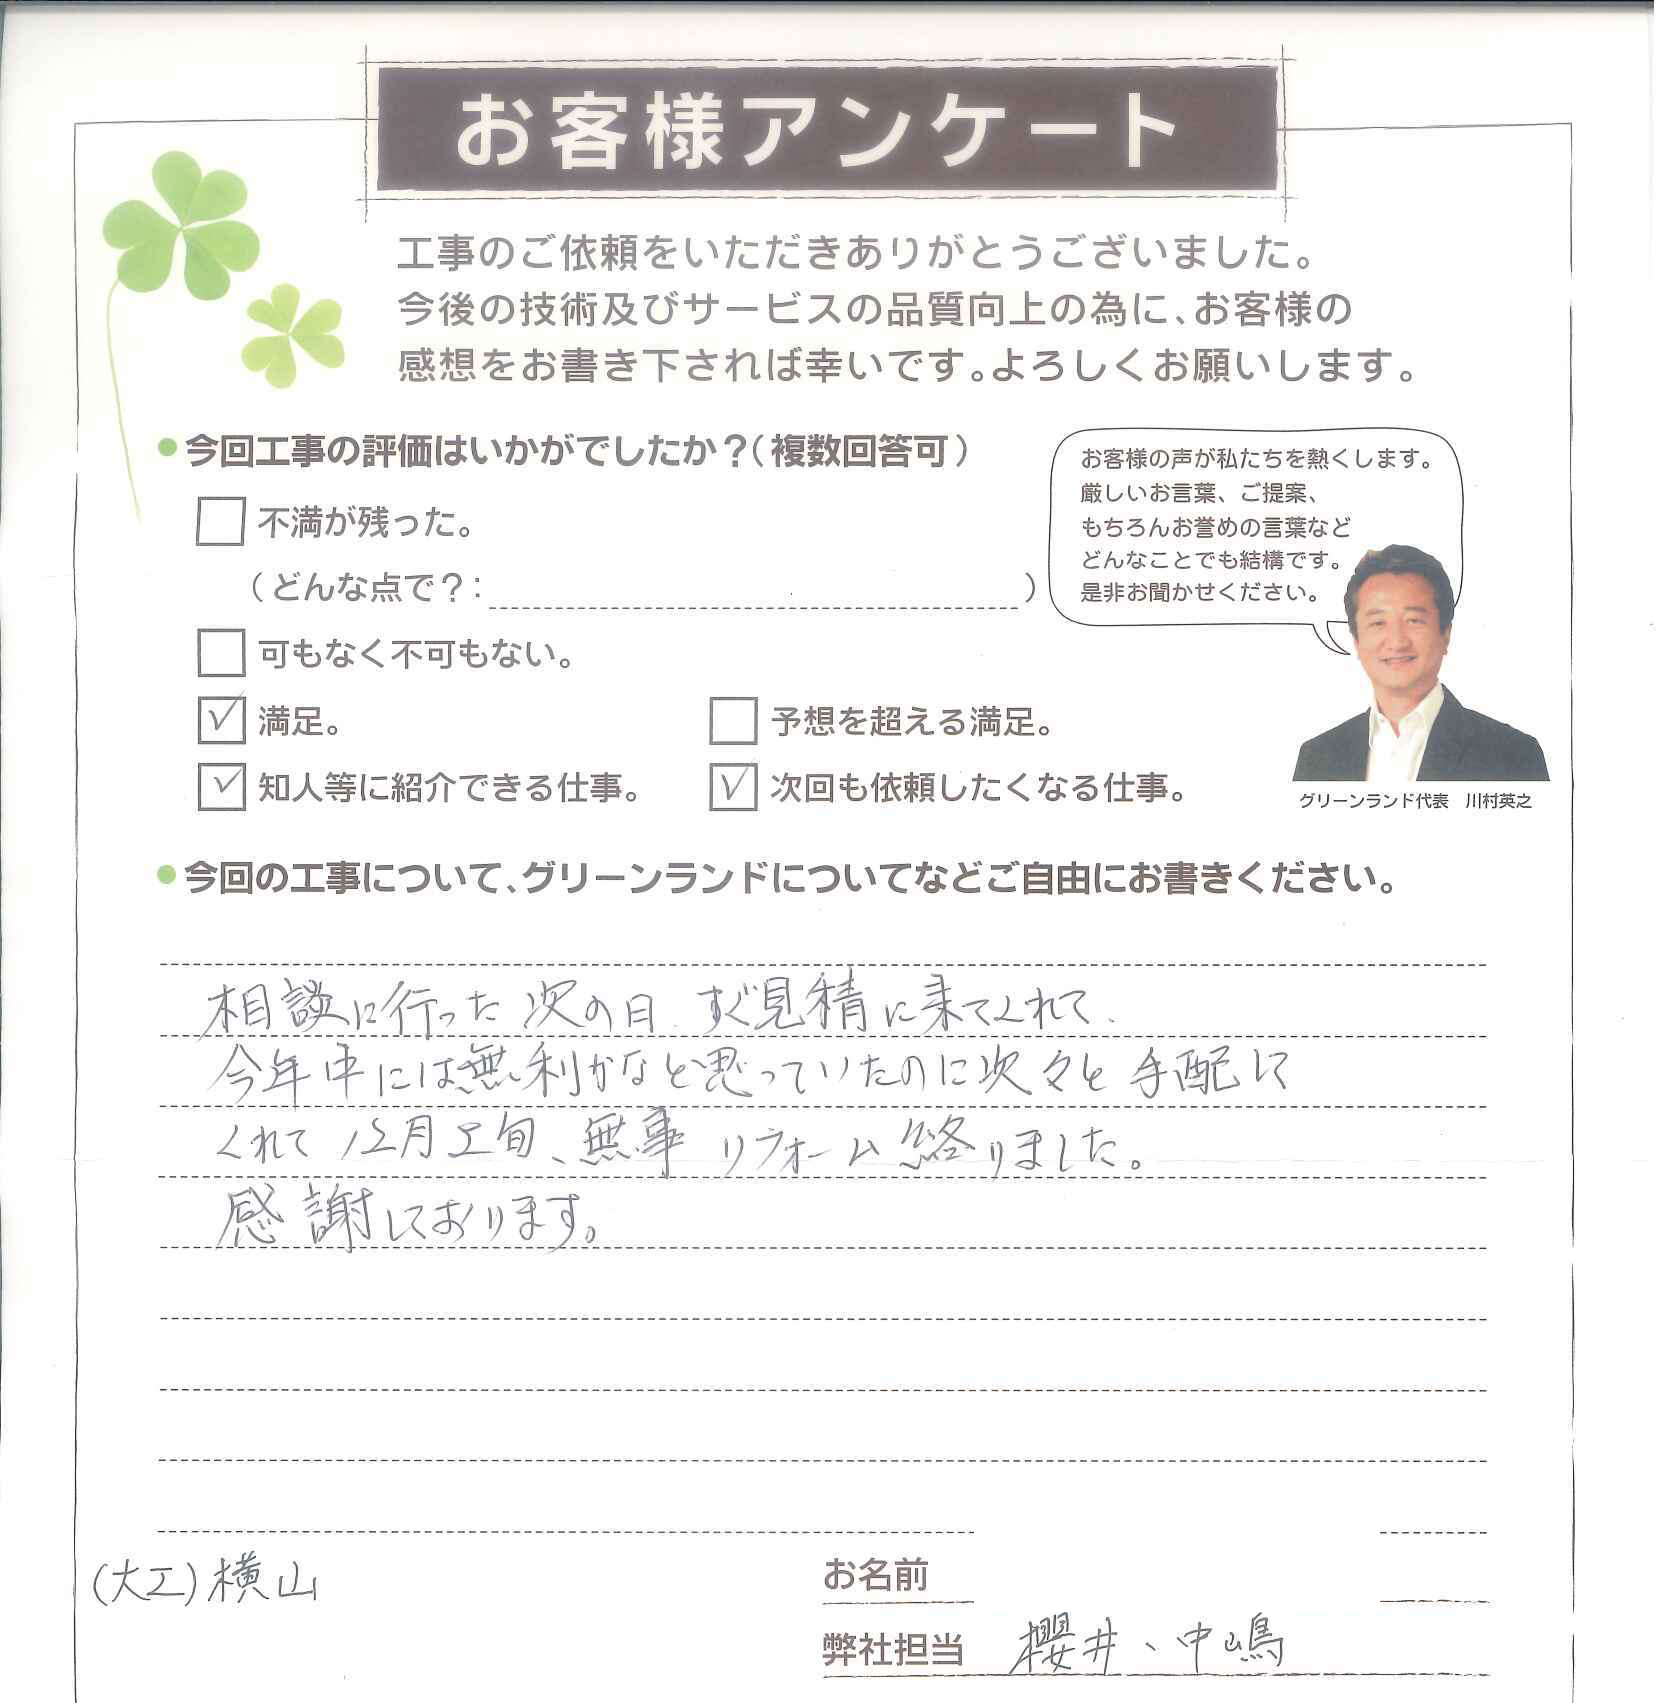 お客様アンケート
工事のご依頼をいただきありがとうございました。
今後の技術及びサービスの品質向上の為に、お客様の
感想をお書き下されば幸いです。よろしくお願いします。
●今回工事の評価はいかがでしたか？（複数回答可）
お客様の声が私たちを熱くします。
厳しいお言葉、ご提案、
もちろんお誉めの言葉など
どんなことでも結構です。
是非お聞かせください。
不満が残った。
（どんな点で？： ）
可もなく不可もない。
満足。
予想を超える満足。
知人等に紹介できる仕事。
次回も依頼したくなる仕事。
グリーンランド代表 川村英之
●今回の工事について、グリーンランドについてなどご自由にお書きください。
相談に行った次の日、すぐ見積に来てくれて、
今年中には無利かなと思っていたのに次々と手配して
くれて12月上旬、無事リフォーム終りました。
感謝しております。
(大工)横山
お名前
弊社担当 櫻井、中嶋